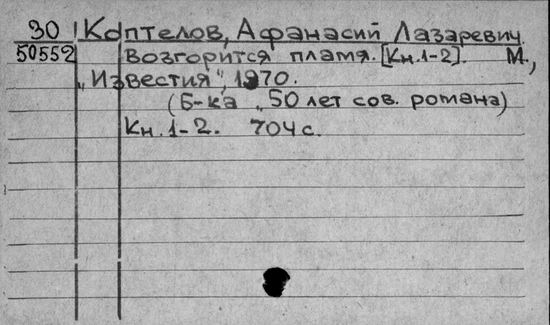 30 Коптелов, Афанасий Лазаревич.
50552 Возгорится пламя. [Кн. 1-2]. М.,
„Известия", 1970.
(Б-ка „50 лет сов. романа)
Кн. 1-2. 704 с.